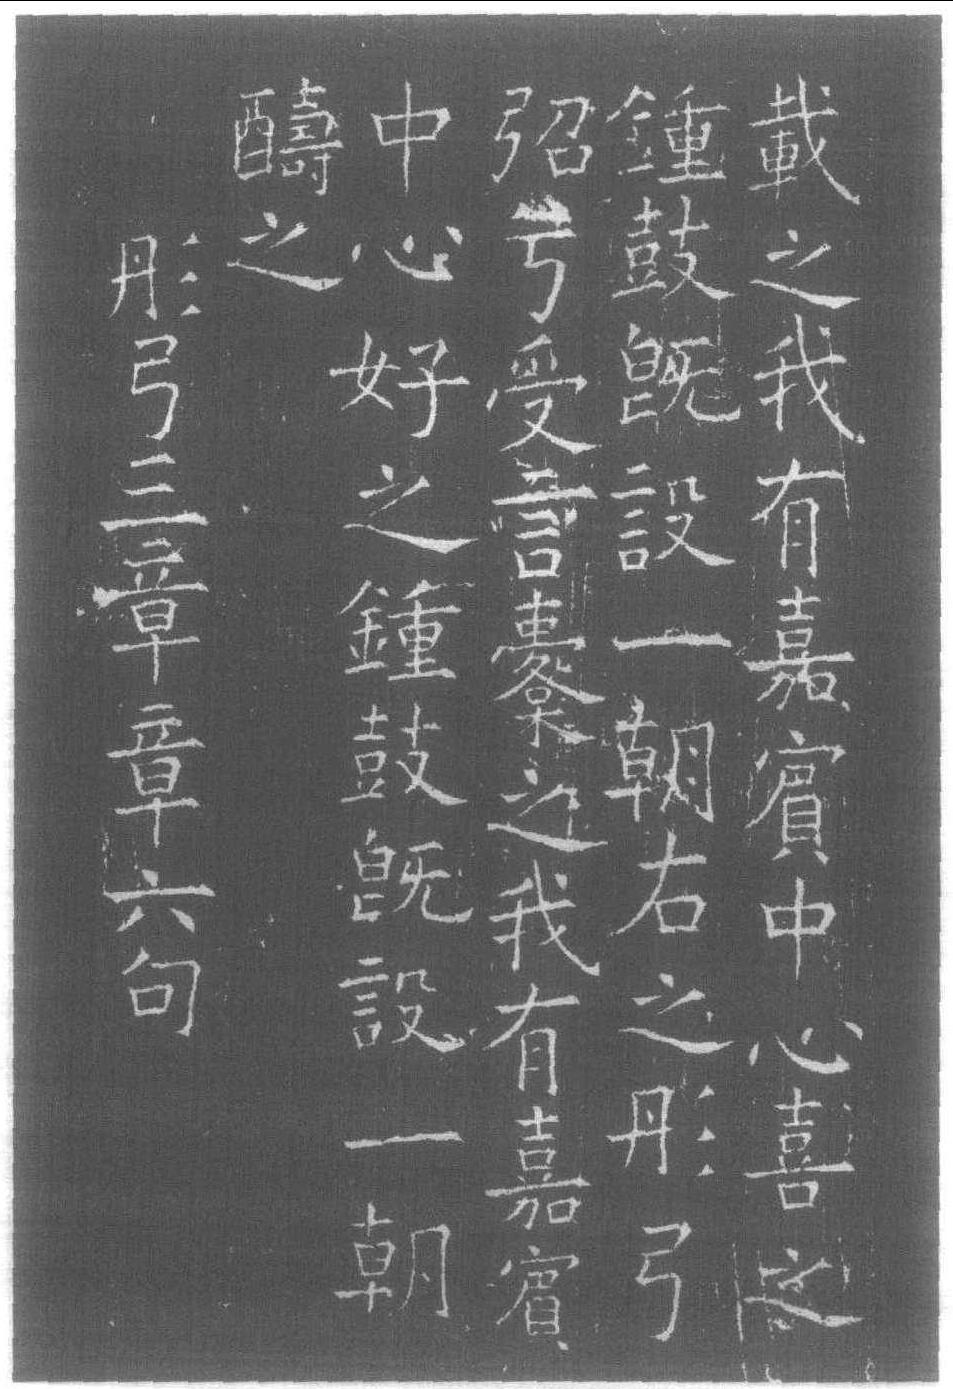 載之我有嘉賔中心喜之
鍾鼓既設一朝右之彤弓
弨兮受言櫜之我有嘉賔
中心好之鍾鼓既設一朝
醻之
彤弓三章章六句